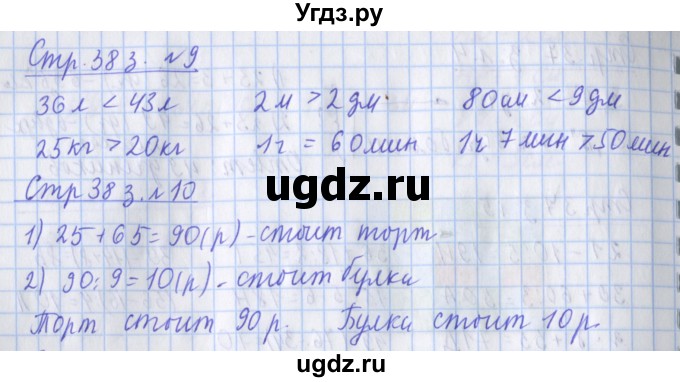 Угдз.ру
Стр. 38 з. №9
36 л < 43 л 2 м > 2 дм. 80 см < 9 дм
25 кг > 20 кг 1 г = 60 мин 1 ч 7 мин > 50 мин
ugdz.ru
Стр 38 з. №10
1) 25 + 65 = 90 (р) - стоит торт
2) 90 : 9 = 10 (р) - стоит булка
Торт стоит 90 р. Булка стоит 10 р.
ugdz.ru